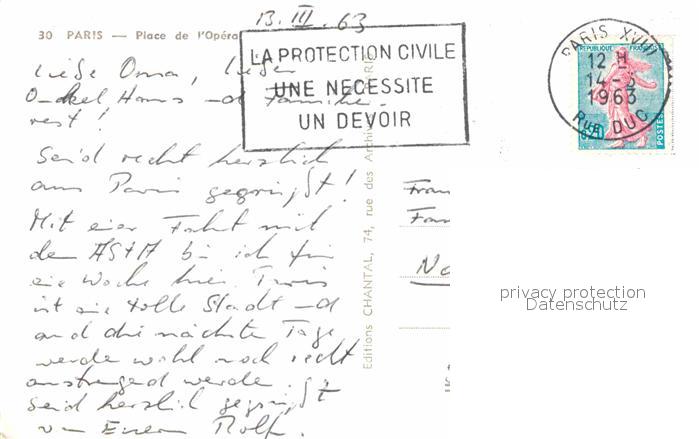 13. III. 63
30 PARIS — Place de l'Opéra
LA PROTECTION CIVILE
UNE NECESSITE
UN DEVOIR
PARIS XVIII
12 H
14 - 3
1963
Rue DUC
REPUBLIQUE FRANÇAISE
0,20
POSTES
Liebe Oma, lieber
Onkel Hans und Familien-
rest!
Seid recht herzlich
aus Paris gegrüßt!
Mit einer Fahrt mit
dem AStA bin ich für
eine Woche hier. Paris
ist eine tolle Stadt und
und die nächste Tage
werde wohl noch recht
anstrengend werde.
Seid herzlich gegrüßt
von Eurem Rolf.
Editions CHANTAL, 74, rue des Archives, PARIS
Frau
Fam
privacy protection
Datenschutz